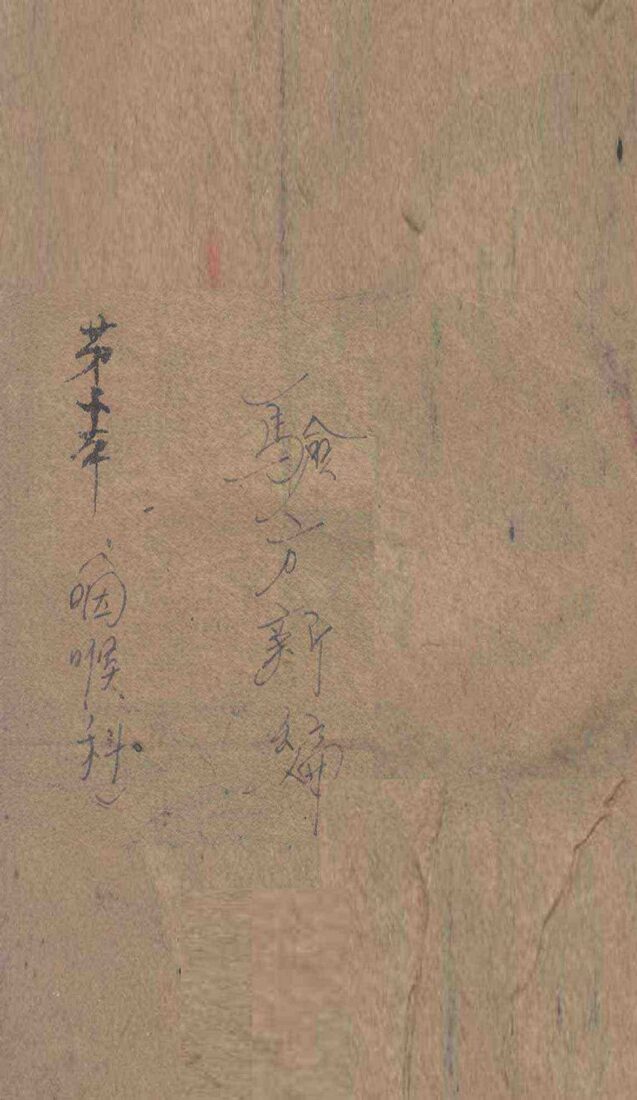 驗方新編
第十本（咽喉科）